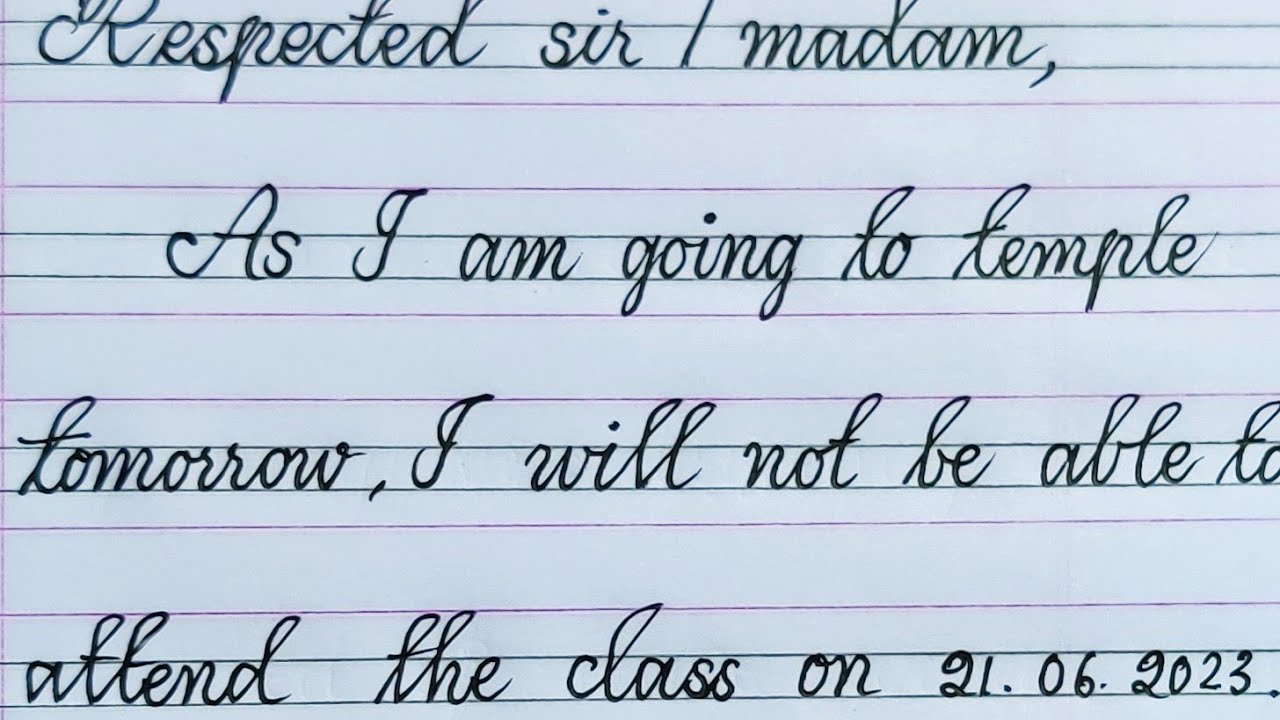 Respected sir / madam,
As I am going to temple
tomorrow, I will not be able to
attend the class on 21.06.2023.